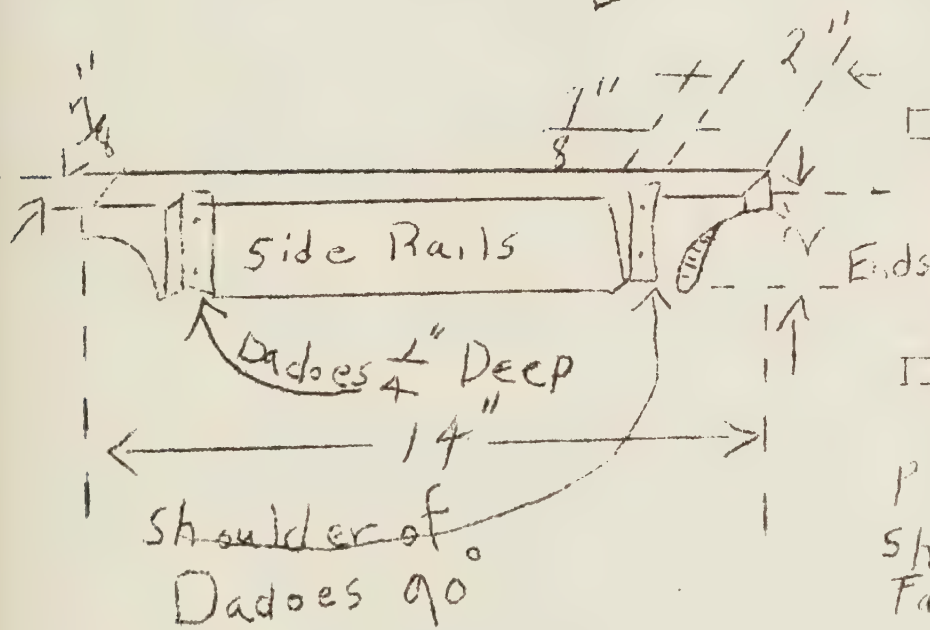 2"
Side Rails
Ends
Dadoes 1/4" Deep
14"
Shoulder of
Dadoes 90°